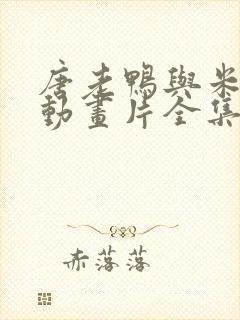 唐老鴨與米
動畫片全集
赤落落